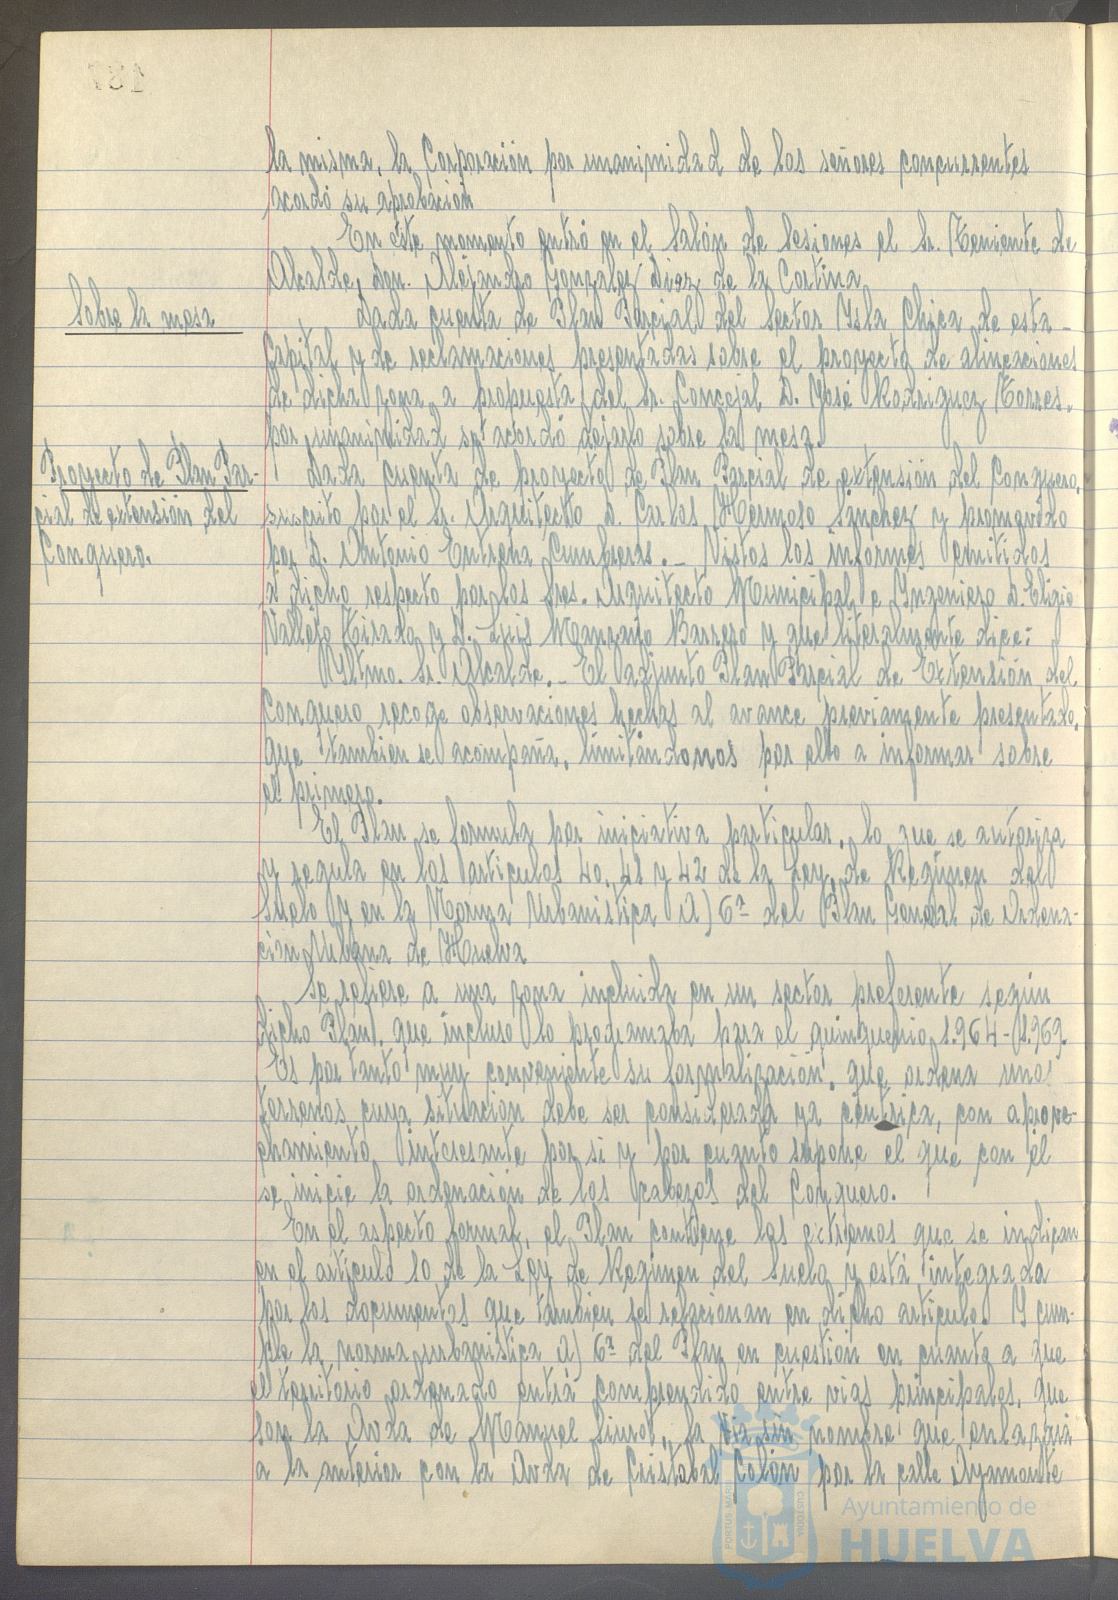 187
la misma, la Corporación por unanimidad de los señores concurrentes
acordó su aprobación
En este momento entró en el Salón de Sesiones el Sr. Teniente de
Alcalde, Don. Alejandro Gonzalez Diez de la Cortina
Sobre la mesa
Dada cuenta de Plan Parcial del Sector Isla Chica de esta-
Capital y de reclamaciones presentadas sobre el proyecto de alineaciones
de dicha zona, a propuesta del Sr. Concejal D. José Rodriguez Torres.
por unanimidad se acordó dejarlo sobre la mesa.
Proyecto de Plan Par-
cial de extensión del
Conquero.
Dada cuenta de proyecto de Plan Parcial de extensión del Conquero,
suscrito por el Sr. Arquitecto D. Carlos Hermoso Sánchez y promovido
por D. Antonio Entrena Cumbreras.- Vistos los informes emitidos
a dicho respecto por los Sres. Arquitecto Municipal e Ingeniero D. Eligio
Vallejo Tirado y D. Luis Manzano Barrero y que literalmente dice:
Yltmo. Sr. Alcalde.- El adjunto Plan Parcial de Extensión del
Conquero recoge observaciones hechas al avance previamente presentado,
que tambien se acompaña, limitándonos por ello a informar sobre
el primero.
El Plan se formula por iniciativa particular, lo que se autoriza
y regula en los articulos 40, 41 y 42 de la Ley de Regimen del
Suelo y en la Norma Urbanistica A) 6ª del Plan General de Ordena-
ción Urbana de Huelva
Se refiere a una zona incluida en un sector preferente según
dicho Plan, que incluso lo programaba para el quinquenio 1.964-1.969.
Es por tanto muy conveniente su formalización, que ordena unos
terrenos cuya situación debe ser considerada ya céntrica, con aprove-
chamiento interesante por si y por cuanto supone el que con él
se inicie la ordenación de los cabezos del Conquero.
En el aspecto formal, el Plan contiene los extremos que se indican
en el artículo 10 de la Ley de Regimen del Suelo y está integrada
por los documentos que tambien se relacionan en dicho articulo. Y cum-
ple la norma urbanistica A) 6ª del Plan en cuestión en cuanto a que
el territorio ordenado entrá comprendido entre vias principales, que
son la Avda de Manuel Siurot, la via sin nombre que enlazará
a la anterior con la Avda de Cristobal Colón por la calle Ayamonte
PORTUS MARIS
CUSTODIA
Ayuntamiento de
HUELVA